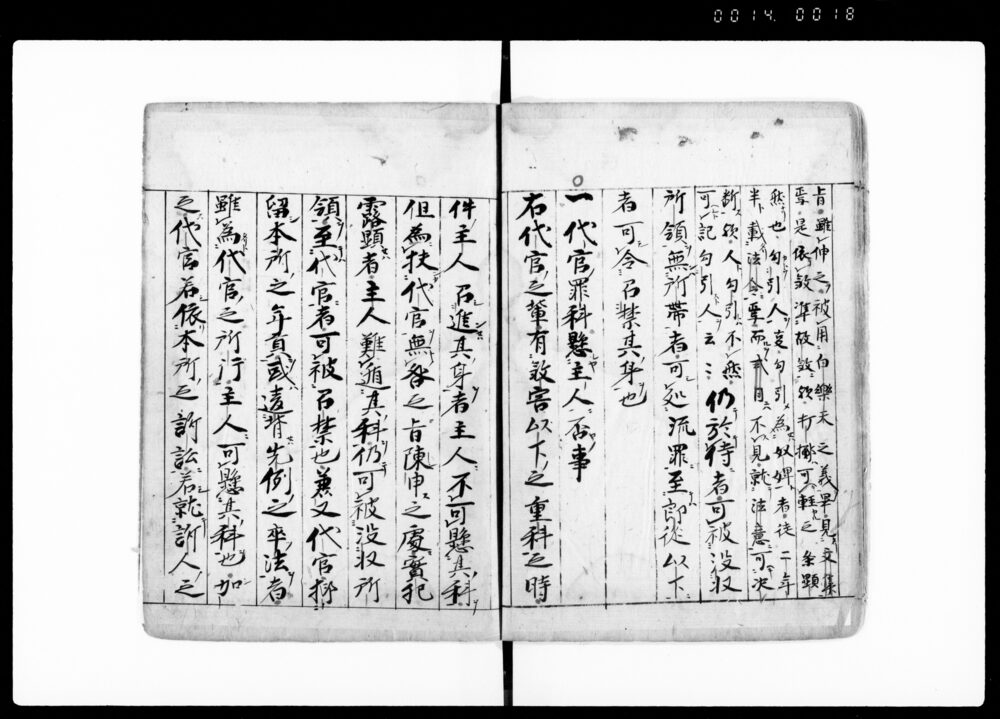 0014 0018
旨雖伸之被用白樂天之義畢見文集
焉是依敘準故敘欤打擲可輕之条顕
然也勾引人定勾引為奴婢者徒二年
半載法令畢而式目不見就法意可决
断欤人勾引不然
可記勾引人云々仍於侍者可被没収
所領無所帯者可処流罪至郎従以下
者可令召禁其身也
一代官罪科懸主人否事
右代官之輩有殺害以下之重科之時
件主人召進其身者主人不可懸其科
但為扶代官無咎之旨陳申之處實犯
露顕者主人難遁其科仍可被没収所
領至代官者可被召禁也兼又代官抑
留本所之年貢或違背先例之率法者
雖為代官之所行主人可懸其科也加
之代官若依本所之訴訟若就訴人之